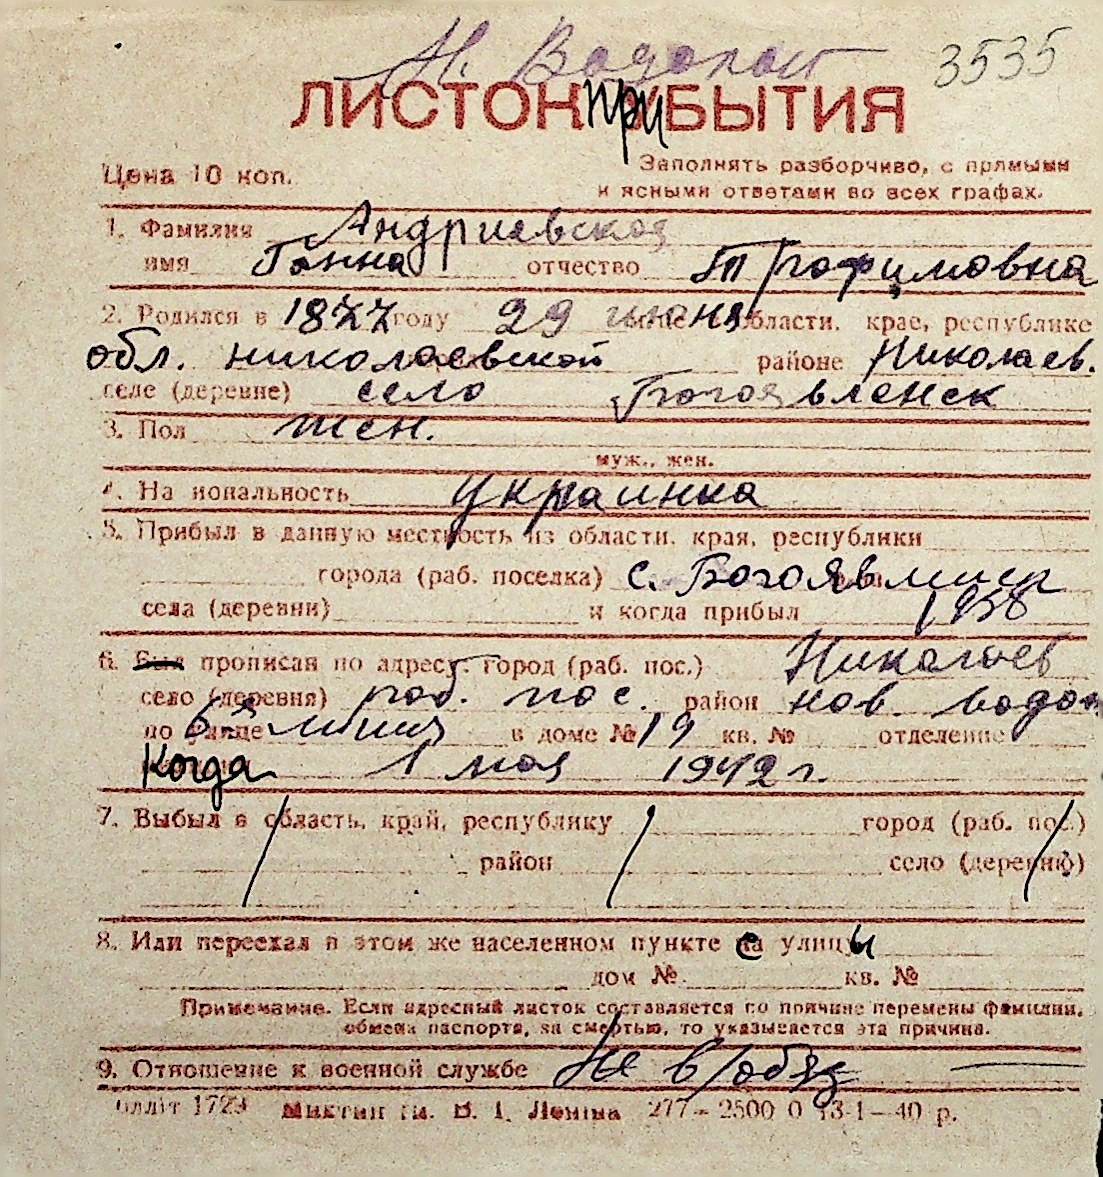 Н. Водопой 3535
ЛИСТОК ПРИБЫТИЯ
Цена 10 коп. Заполнять разборчиво, с прямыми
и ясными ответами во всех графах.
1. Фамилия Андриевская
имя Ганна отчество Трофимовна
2. Родился в 1877 году 29 июня области, крае, республике
обл. николаевской районе Николаев.
селе (деревне) село Богоявленск
3. Пол жен.
муж., жен.
4. На иональность украинка
5. Прибыл в данную местность из области, края, республики
города (раб. поселка) с. Богоявленск
села (деревни) и когда прибыл
6. Был прописан по адресу: город (раб. пос.) Николаев
село (деревня) раб. пос. район нов. водоп
по улице 6-я линия в доме № 19 кв. № отделение
Когда 1 мая 1942 г.
7. Выбыл в область, край, республику город (раб. пос.)
район село (деревню)
8. Или переехал в этом же населенном пункте с улицы
дом № кв. №
Примечание. Если адресный листок составляется по причине перемены фамилии,
обмена паспорта, за смертью, то указывается эта причина.
9. Отношение к военной службе Не в/обяз
1723 ім. В. І. Леніна 277–2500 0 13-1–40 р.